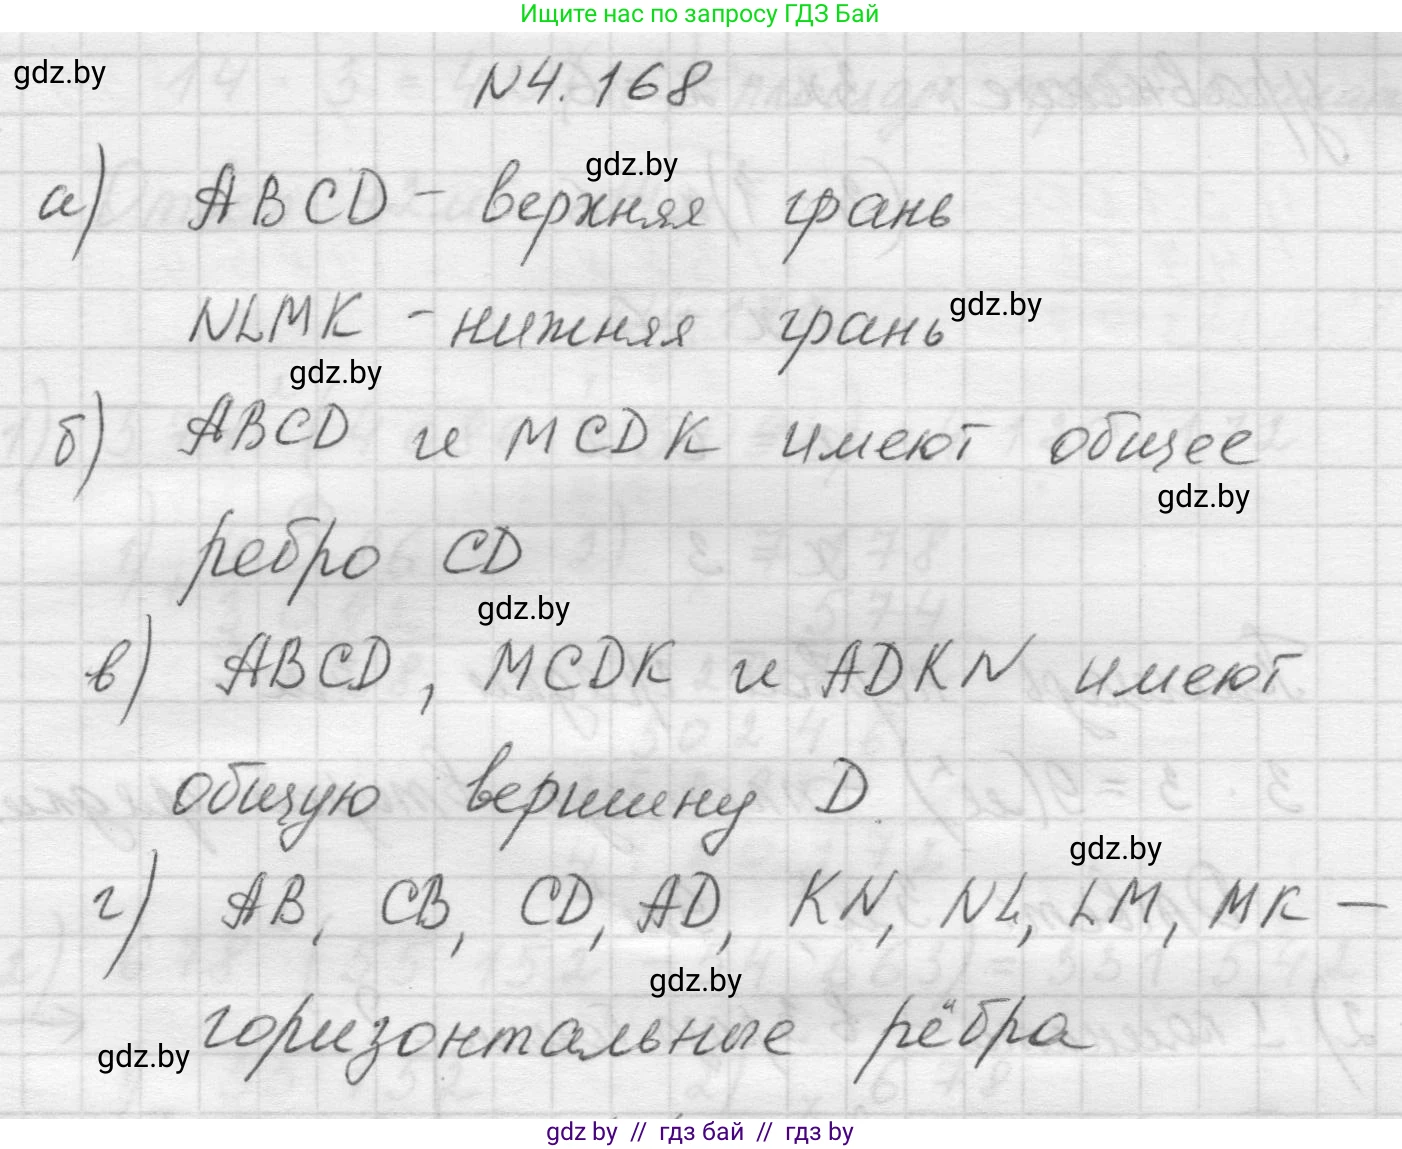 Ищите нас по запросу ГДЗ Бай
gdz.by
N4.168
gdz.by
а) ABCD - верхняя грань
gdz.by
NLMK - нижняя грань
gdz.by
б) ABCD и MCDK имеют общее
gdz.by
ребро CD
gdz.by
в) ABCD, MCDK и ADKN имеют
общую вершину D.
gdz.by
г) AB, CB, CD, AD, KN, NL, LM, MK —
gdz.by
горизонтальные рёбра
gdz.by
gdz by // гдз бай // гдз by